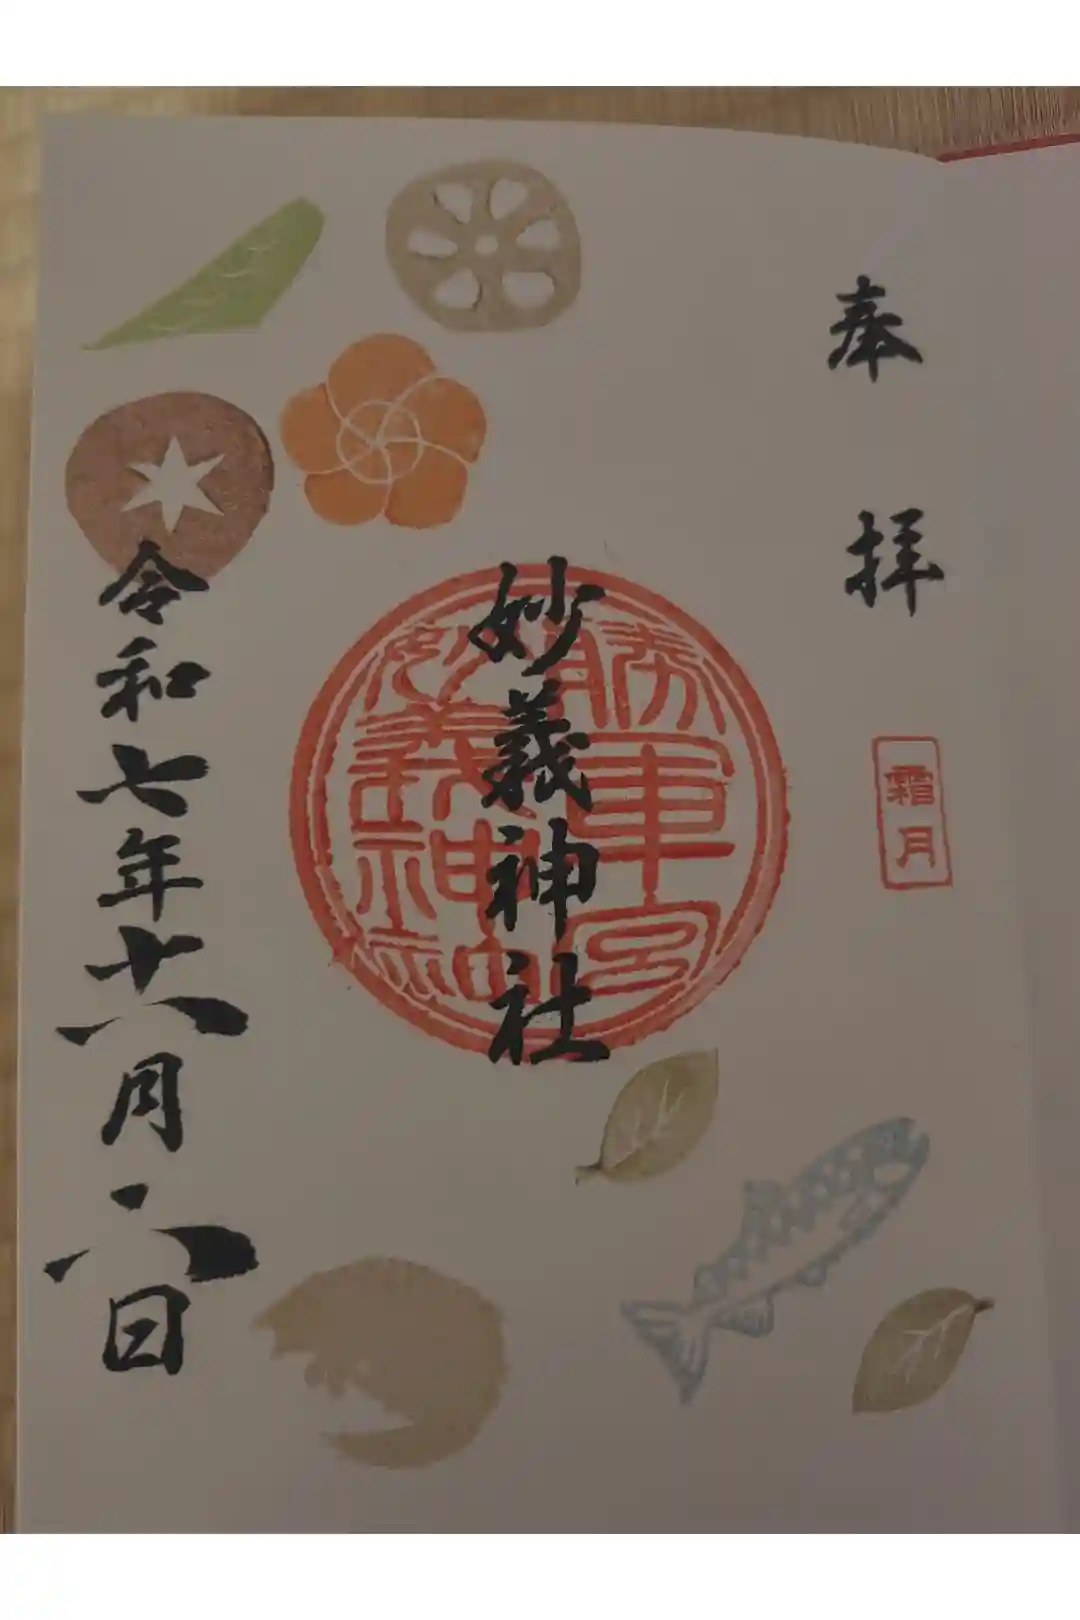 奉拝
霜月
勝軍宮
妙義神社
妙義神社
令和七年十一月六日